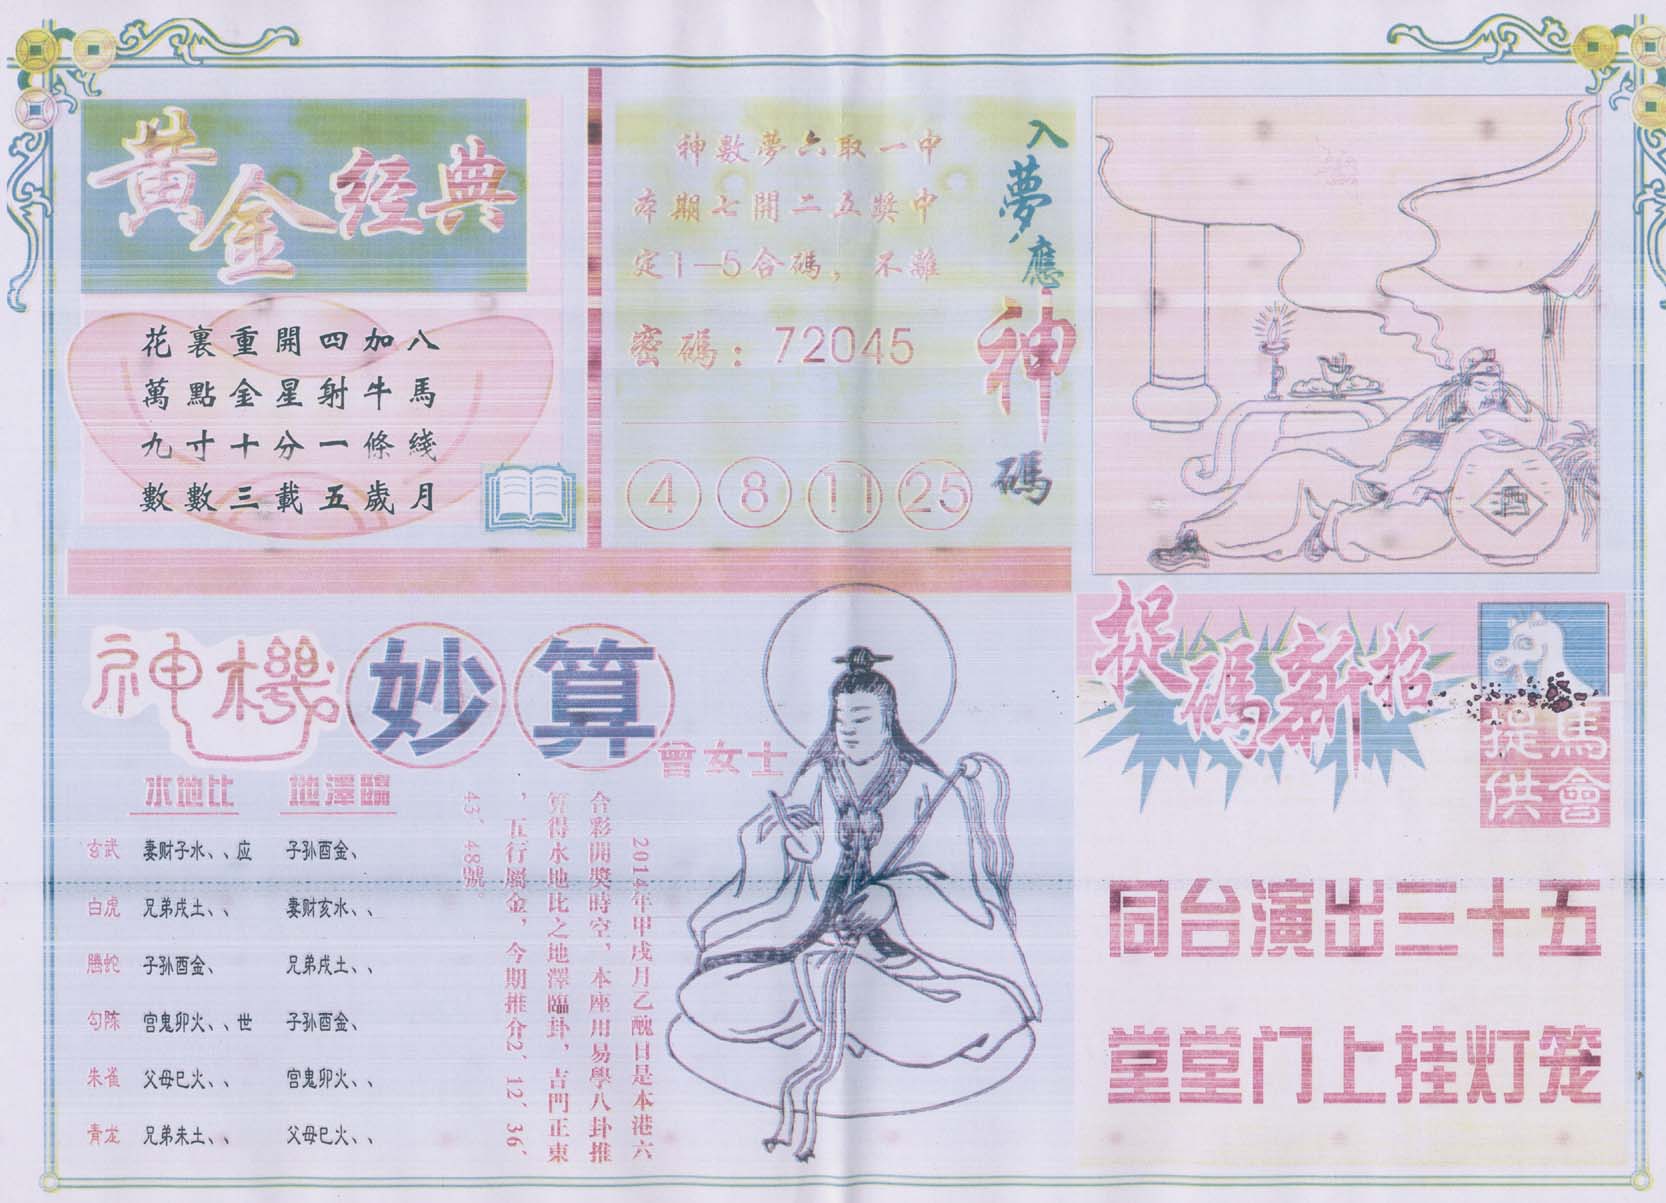 黃金經典
花裏重開四加八
萬點金星射牛馬
九寸十分一條綫
數數三載五歲月
神數夢六取一中
本期七開二五獎中
定1—5合碼，不離
密碼：72045
4 8 11 25
入夢應神碼
酒
神機妙算
曾女士
水地比 地澤臨
玄武 妻财子水、、应 子孙酉金、
白虎 兄弟戌土、、 妻财亥水、、
腾蛇 子孙酉金、 兄弟戌土、、
勾陈 官鬼卯火、、世 子孙酉金、
朱雀 父母巳火、、 官鬼卯火、、
青龙 兄弟未土、、 父母巳火、、
2014年甲戌月乙醜日是本港六
合彩開獎時空，本座用易學八卦推
算得水地比之地澤臨卦，吉門正東
，五行屬金，今期推介2、12、36、
43、48號。
捉碼新招
馬會
提供
同台演出三十五
堂堂门上挂灯笼